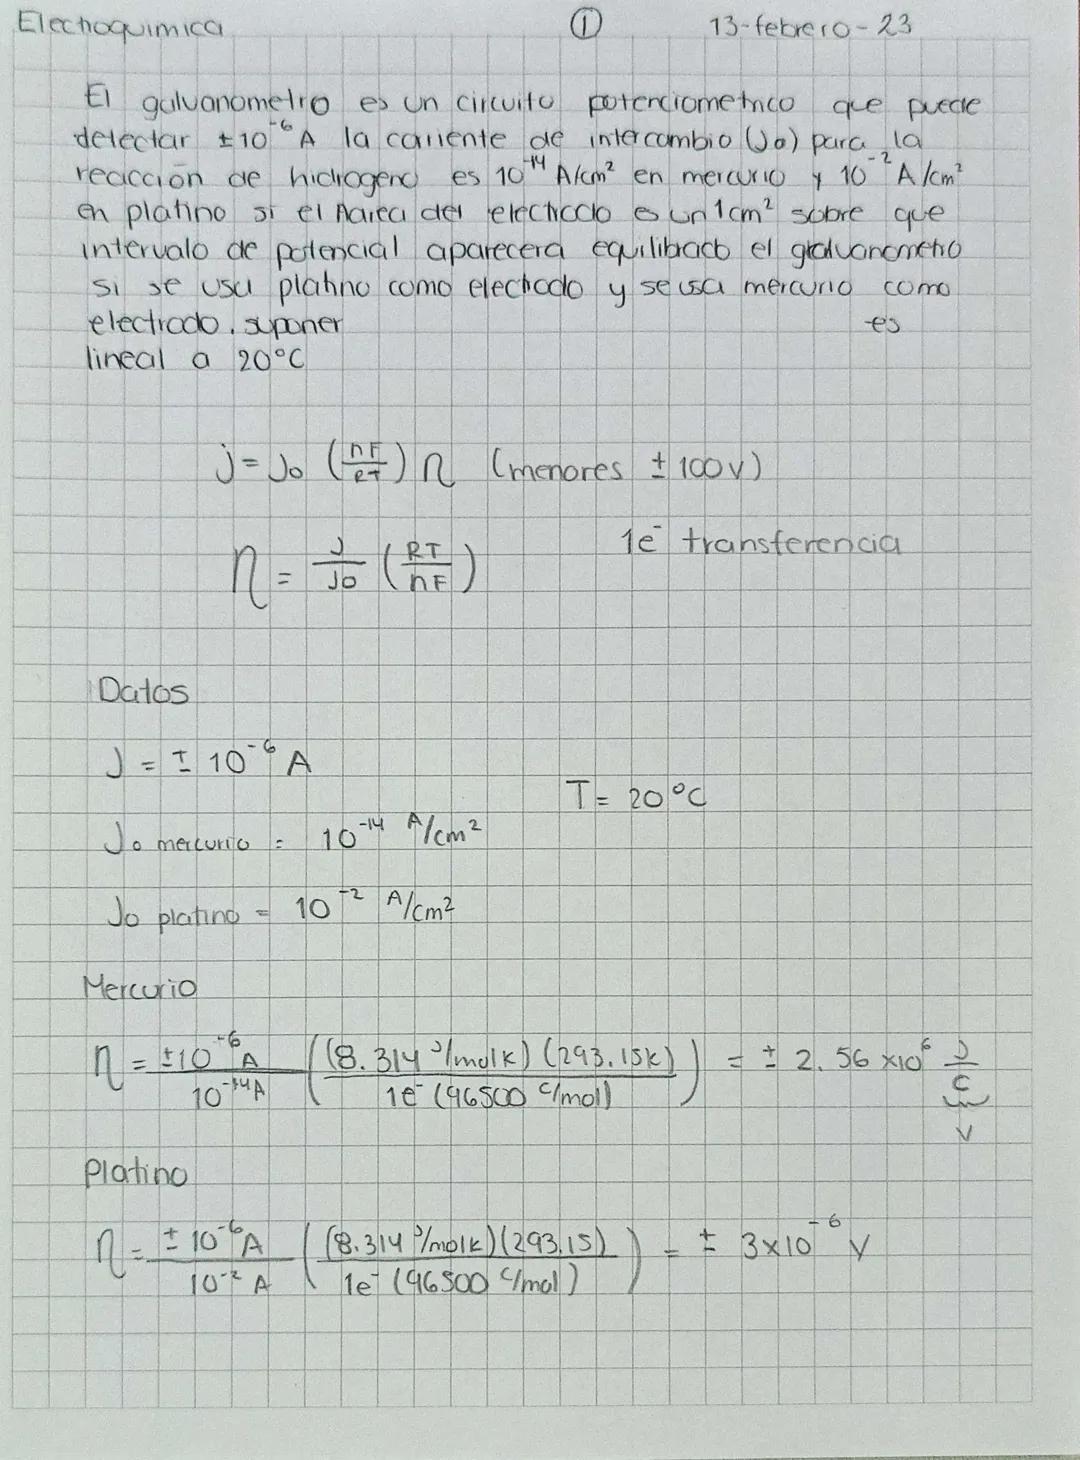 Electroquimica ① 13-febrero-23
El galvanometro es un circuito potenciometrico que puede
detectar ±10⁻⁶ A la corriente de intercambio (Jo) para la
reacción de hidrogeno es 10⁻¹⁴ A/cm² en mercurio y 10⁻² A/cm²
en platino si el Aarea del electrodo es un 1cm² sobre que
intervalo de potencial aparecera equilibrado el galvanometro
si se usa platino como electrodo y se usa mercurio como
electrodo. suponer es
lineal a 20°C
j = Jo (nF/RT) η (menores ± 100v)
η = J/Jo (RT/nF) 1e⁻ transferencia
Datos
J = ± 10⁻⁶ A
T = 20°C
Jo mercurio = 10⁻¹⁴ A/cm²
Jo platino = 10⁻² A/cm²
Mercurio
η = ±10⁻⁶ A / 10⁻¹⁴ A ((8.314 J/molK) (293.15K) / 1e⁻ (96500 C/mol)) = ± 2.56 x10⁶ J/C
V
Platino
η = ± 10⁻⁶ A / 10⁻² A ((8.314 J/molK)(293.15) / 1e⁻ (96500 C/mol)) = ± 3x10⁻⁶ V